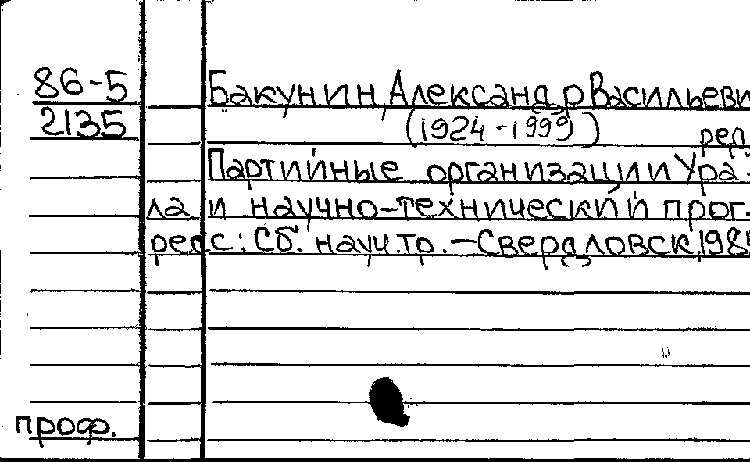 86-5 Бакунин, Александр Васильеви
2135 (1924-1999) ред
Партийные организации Ура-
ла и научно-технический прог-
ресс: Сб. науч. тр. – Свердловск, 198
проф.